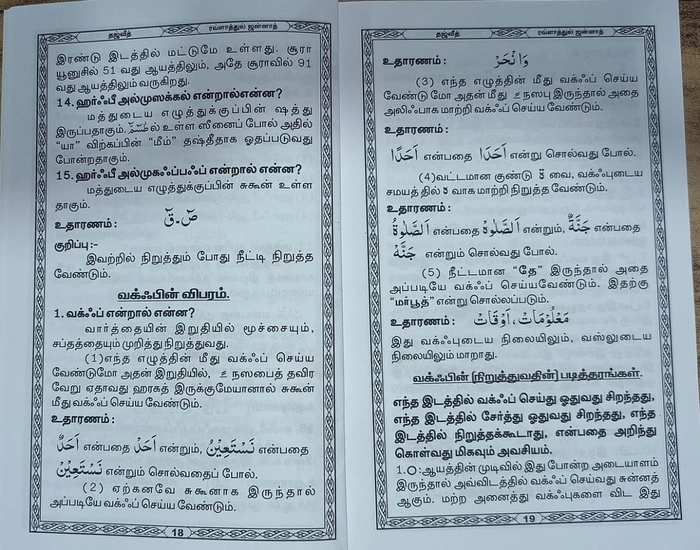 தஜ்வீத் ரவ்ளாத்துல் ஜன்னாத்
இரண்டு இடத்தில் மட்டுமே உள்ளது. சூரா
யூனுசில் 51 வது ஆயத்திலும், அதே சூராவில் 91
வது ஆயத்திலும் வருகிறது.
14. ஹர்ஃபீ அல்முஸக்கல் என்றால்என்ன?
மத்துடைய எழுத்துக்குப்பின் ஷத்து
இருப்பதாகும். طٰسٓمّٓ ல் உள்ள ஸீனைப் போல் அதில்
"யா" விற்கப்பின் "மீம்" தஷ்தீதாக ஓதப்படுவது
போன்றதாகும்.
15. ஹர்ஃபீ அல்முகஃப்பஃப் என்றால் என்ன?
மத்துடைய எழுத்துக்குப்பின் சுகூன் உள்ள
தாகும்.
உதாரணம் : صٓ - قٓ
குறிப்பு :-
இவற்றில் நிறுத்தும் போது நீட்டி நிறுத்த
வேண்டும்.
வக்ஃபின் விபரம்.
1. வக்ஃப் என்றால் என்ன?
வார்த்தையின் இறுதியில் மூச்சையும்,
சப்தத்தையும் முறித்து நிறுத்துவது.
(1)எந்த எழுத்தின் மீது வக்ஃப் செய்ய
வேண்டுமோ அதன் இறுதியில், ً நஸபைத் தவிர
வேறு ஏதாவது ஹரகத் இருக்குமேயானால் சுகூன்
மீது வக்ஃப் செய்ய வேண்டும்.
உதாரணம் :
اَحَدٌ என்பதை اَحَدْ என்றும், نَسْتَعِيْنُ என்பதை
نَسْتَعِيْنْ என்றும் சொல்வதைப் போல்.
(2) ஏற்கனவே சுகூனாக இருந்தால்
அப்படியே வக்ஃப் செய்ய வேண்டும்.
18
தஜ்வீத் ரவ்ளாத்துல் ஜன்னாத்
உதாரணம் : وَانْحَرْ
(3) எந்த எழுத்தின் மீது வக்ஃப் செய்ய
வேண்டு மோ அதன் மீது ً நஸபு இருந்தால் அதை
அலிஃபாக மாற்றி வக்ஃப் செய்ய வேண்டும்.
உதாரணம் :
اَحَدًا என்பதை اَحَدَا என்று சொல்வது போல்.
(4)வட்டமான குண்டு ة வை, வக்ஃபுடைய
சமயத்தில் ه வாக மாற்றி நிறுத்த வேண்டும்.
உதாரணம் :
اَلصَّلٰوةُ என்பதை اَلصَّلٰوهْ என்றும், جَنَّةٌ என்பதை
جَنَّهْ என்றும் சொல்வது போல்.
(5) நீட்டமான "தே" இருந்தால் அதை
அப்படியே வக்ஃப் செய்யவேண்டும். இதற்கு
"மர்பூத்" என்று சொல்லப்படும்.
உதாரணம் : مَعْلُوْمَاتْ، اَوْقَاتْ
இது வக்ஃபுடைய நிலையிலும், வஸ்லுடைய
நிலையிலும் மாறாது.
வக்ஃபின் (நிறுத்துவதின்) படித்தரங்கள்.
எந்த இடத்தில் வக்ஃப் செய்து ஓதுவது சிறந்தது,
எந்த இடத்தில் சேர்த்து ஓதுவது சிறந்தது, எந்த
இடத்தில் நிறுத்தக்கூடாது, என்பதை அறிந்து
கொள்வது மிகவும் அவசியம்.
1.O:ஆயத்தின் முடிவில் இது போன்ற அடையாளம்
இருந்தால் அவ்விடத்தில் வக்ஃப் செய்வது சுன்னத்
ஆகும். மற்ற அனைத்து வக்ஃபுகளை விட இது
19